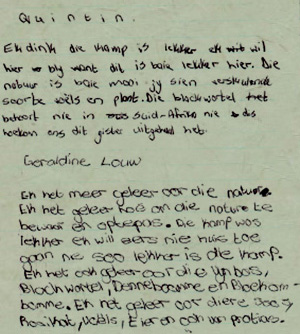 Quintin.
Ek dink die kamp is lekker ek wil
hier bly want dit is baie lekker hier. Die
natuur is baie mooi jy sien verskillende
soorte voëls en plant. Die blackwortel
behoort nie in Suid-Afrika nie
hoekom ons dit gister uitgehaal het.
Geraldine Louw
Ek het meer geleer oor die nature
Ek het geleer hoe on die nature te
bewaar en optepas. Die kamp was
lekker ek will eers nie huis toe
gaan ne soo lekker is die kamp.
Ek het ook geleer oor die fynbois,
Blackwortel, Dennebomme en Bloekom-
bomme. Ek het geleer oor diere soos,
Rooikat, Voëls, Eier en ook van protias.